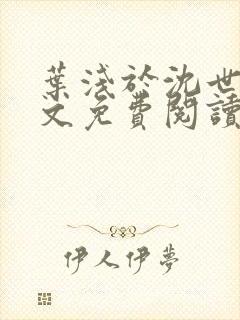 葉淺於沈世
文免費閱讀
伊人伊夢